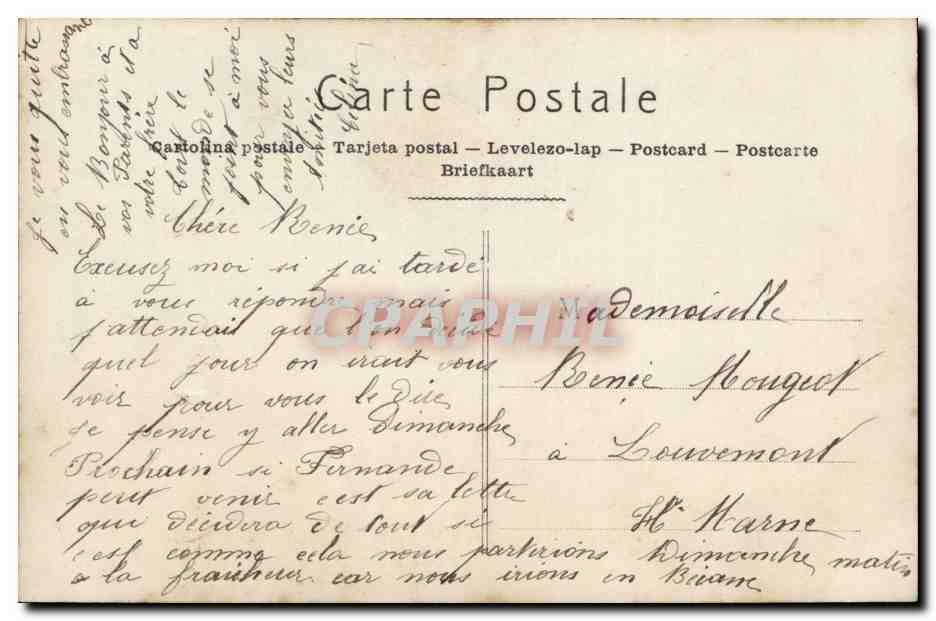 Carte Postale
Cartolina postale — Tarjeta postal — Levelezo-lap — Postcard — Postcarte
Briefkaart
Chère Renée
Excusez moi si j'ai tardé
à vous répondre mais
j'attendait que l'on
quel jour on irait vous
voir pour vous le dire
je pense y aller Dimanche
Prochain si Fernande
peut venir c'est sa lettre
qui décidera de tout si
c'est comme cela nous partirions Dimanche matin
a la fraicheur car nous irions en
je vous quitte
en vous embrassant
Le Bonjour à
vos Parents et a
votre frère
tout le
monde se
joint à moi
pour vous
envoyer leurs
amitiés
Mademoiselle
Renée Mougeot
à Louvemont
Hte Marne
CPAPHIL